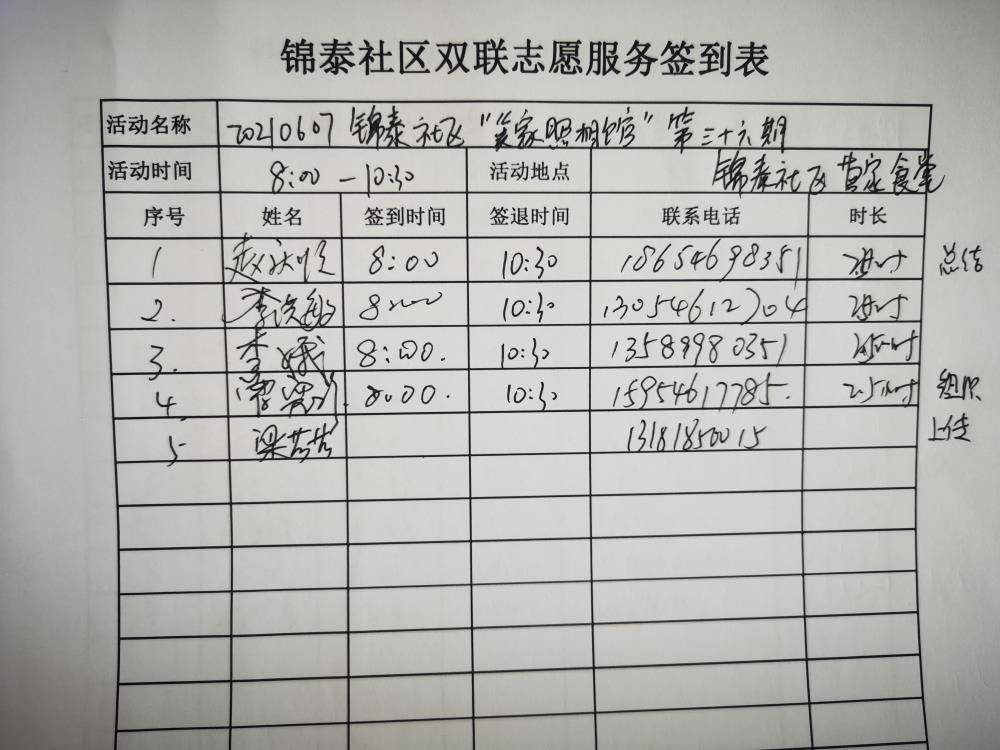 锦泰社区双联志愿服务签到表
活动名称 20210607 锦泰社区“笑家照相馆”第三十六期
活动时间 8:00 — 10:30 活动地点 锦泰社区 食堂
序号 姓名 签到时间 签退时间 联系电话 时长
1 赵 8:00 10:30 18654698351 总结
2. 李 8:00 10:30 13054612704
3. 李 8:00. 10:30 13589980351
4. 8:00. 10:30 15954617785. 2.5 组织
5 梁芸芸 13181850015 上传